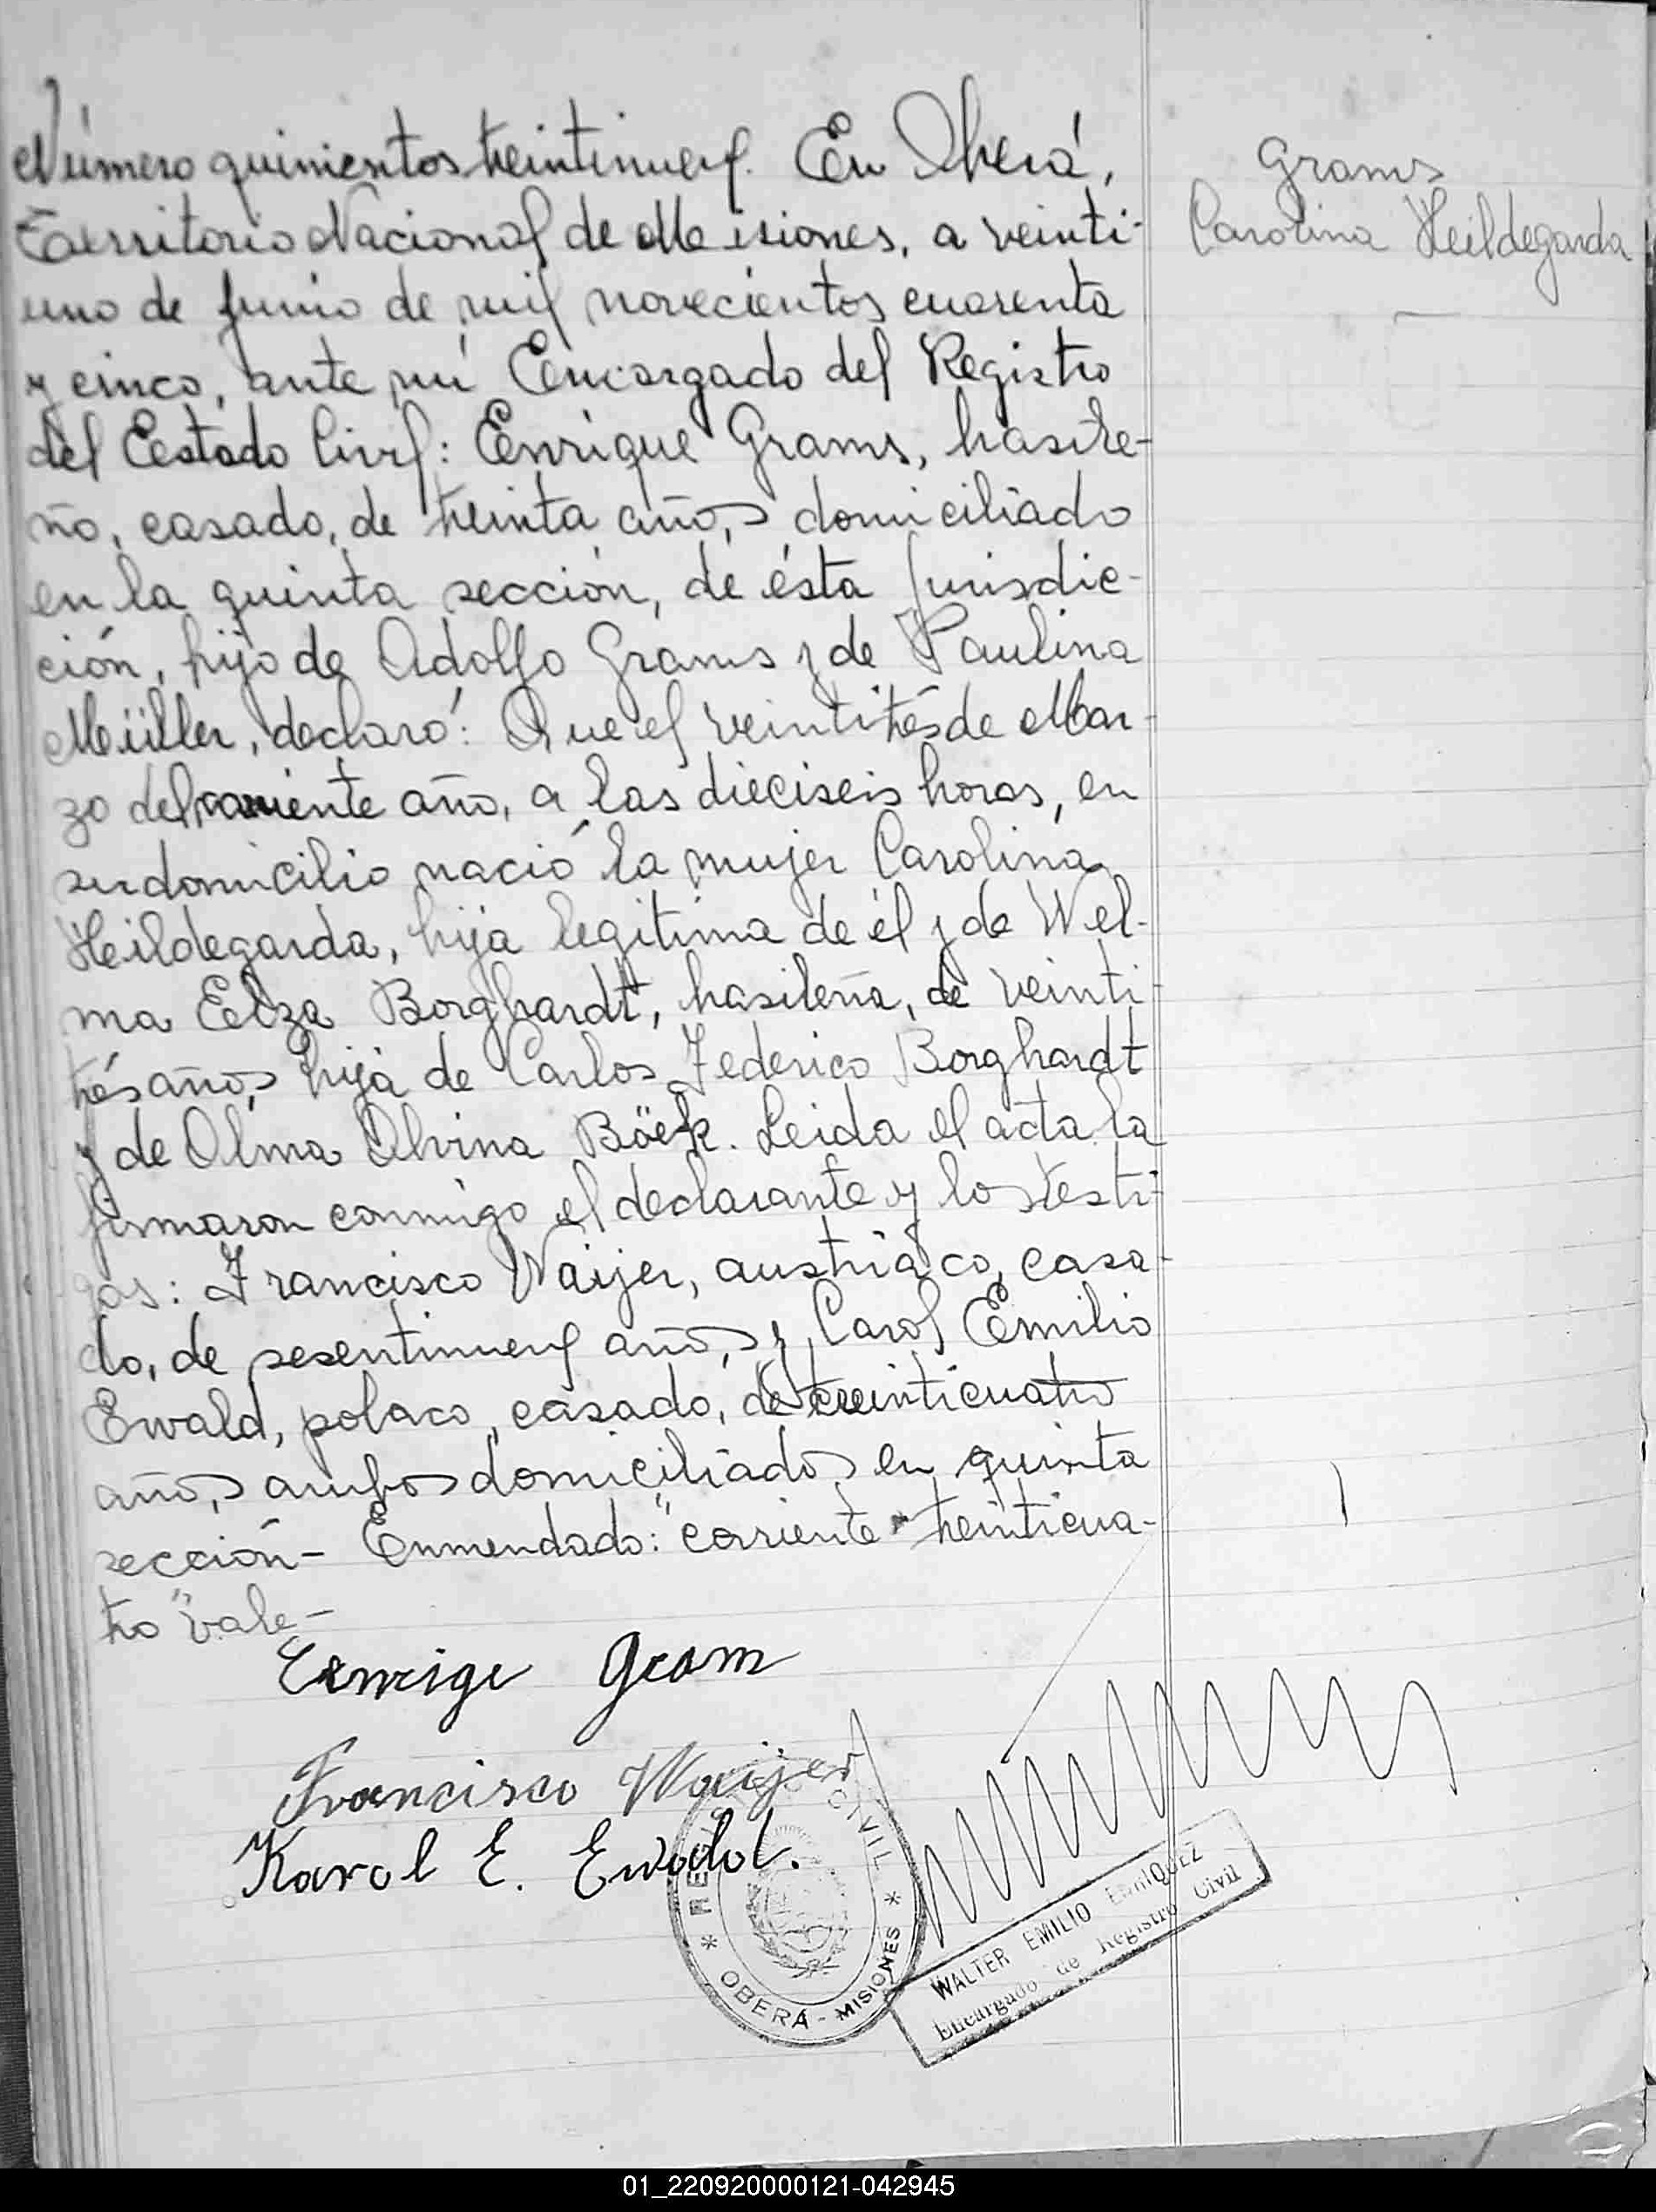 Número quinientos treintinuevf. En Oberá,
Grams
Territorio Nacional de Misiones, a veinti-
Carolina Heildegarda
uno de Junio de mil novecientos cuarenta
y cinco, ante mí Encargado del Registro
del Estado Civil: Enrique Grams, brasile-
ño, casado, de treinta años, domiciliado
en la quinta sección, de ésta Jurisdic-
ción, hijo de Adolfo Grams y de Paulina
Müller, declaró: Que el veintitrés de Mar-
zo del corriente año, a las dieciseis horas, en
su domicilio nació la mujer Carolina
Heildegarda, hija legitima de él y de Wel-
ma Elza Borghardt, brasileña, de veinti
trés años, hija de Carlos Federico Borghardt
y de Olma Olvina Böek. Leida el acta la
firmaron conmigo el declarante y los testi-
gos: Francisco Waijer, austriáco, casa-
do, de sesentinuevf años, y Carol Emilio
Ewald, polaco, casado, de treinticuatro
años, ambos domiciliados en quinta
sección- Enmendado: "corriente" treinticua-
tro "vale-
Enrige Gram
Francisco Waijer
Karol E. Ewald.
REGISTRO CIVIL
* OBERÁ - MISIONES *
WALTER EMILIO ENRIQUEZ
Encargado de Registro Civil
01_220920000121-042945